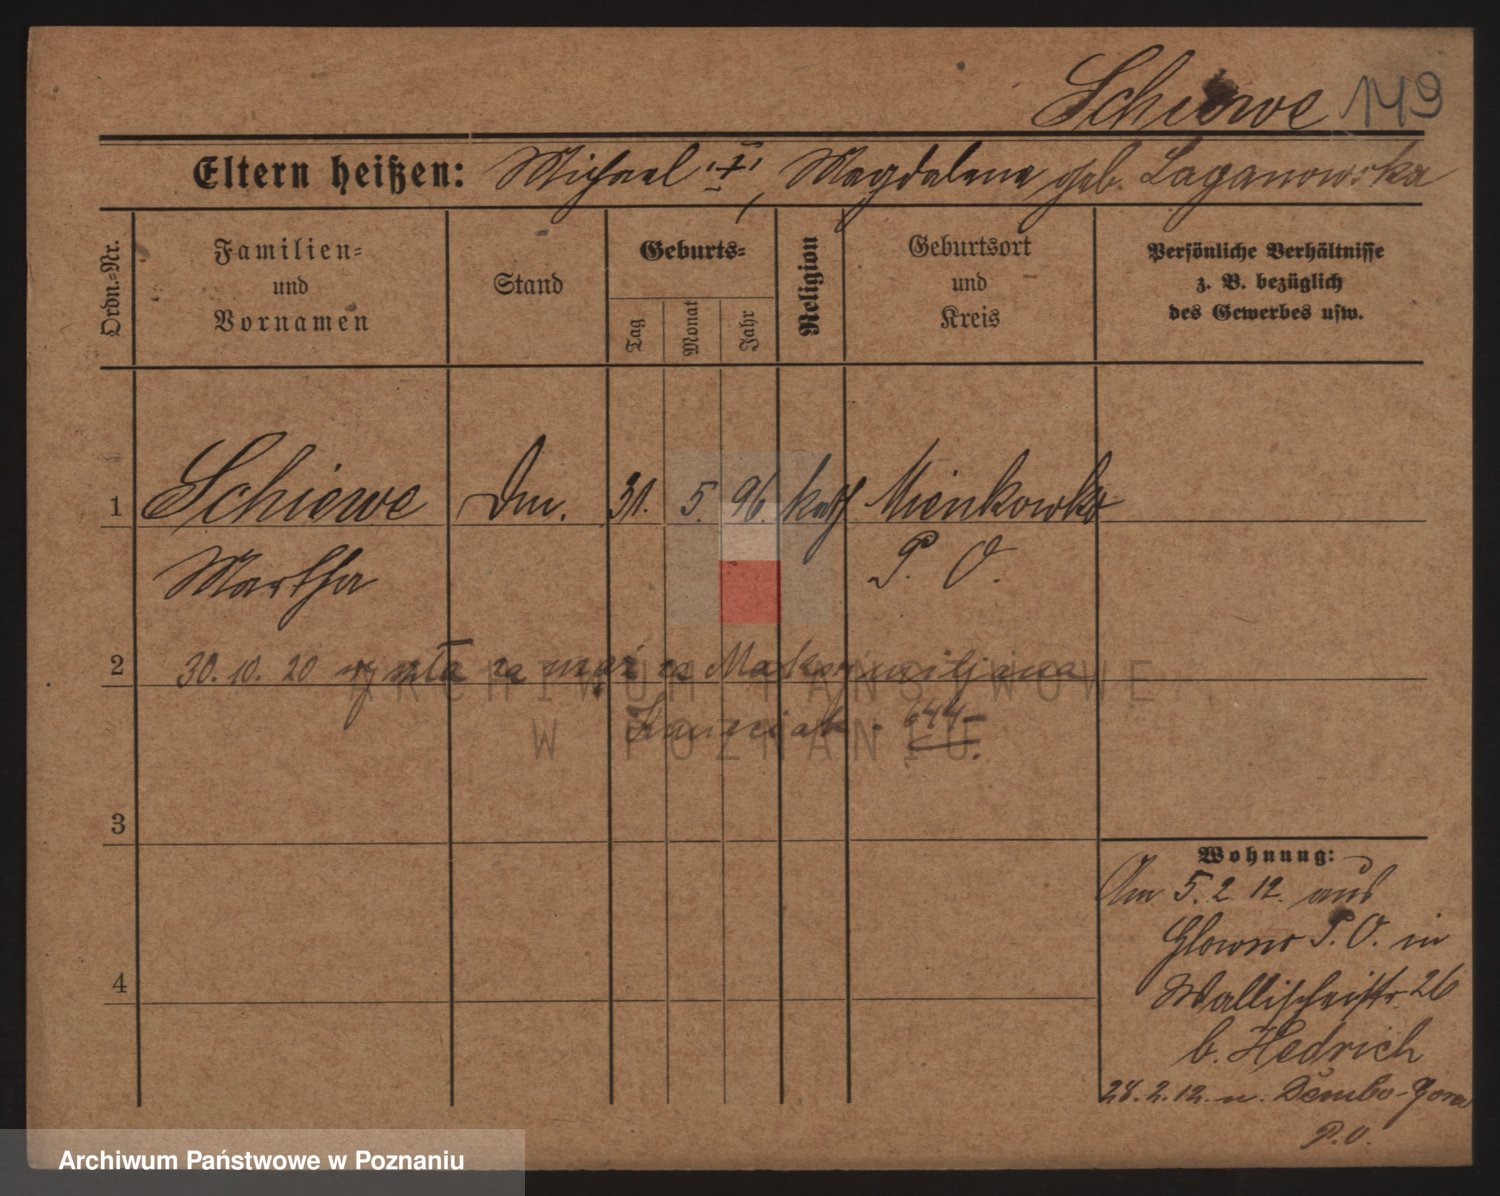 Schiewe 149
Eltern heißen: Michael Magdalena geb. Laganowska
Ordn.-Nr.
Familien-
und
Vornamen
Stand
Geburts-
Tag
Monat
Jahr
Religion
Geburtsort
und
Kreis
Persönliche Verhältnisse
z. B. bezüglich
des Gewerbes usw.
1 Schiewe Dm. 31. 5. 96. kath Mienkowko
Martha P. O.
2 30. 10. 20 wyszła za mąż za Maksymiljana
ARCHIWUM PAŃSTWOWE
W POZNANIU
3
4
Wohnung:
Am 5. 2. 12. aus
Glowno P. O. in
Wallischeistr 26
b. Hedrich
28. 2. 12. n. Dembo-Gora
P. O.
Archiwum Państwowe w Poznaniu